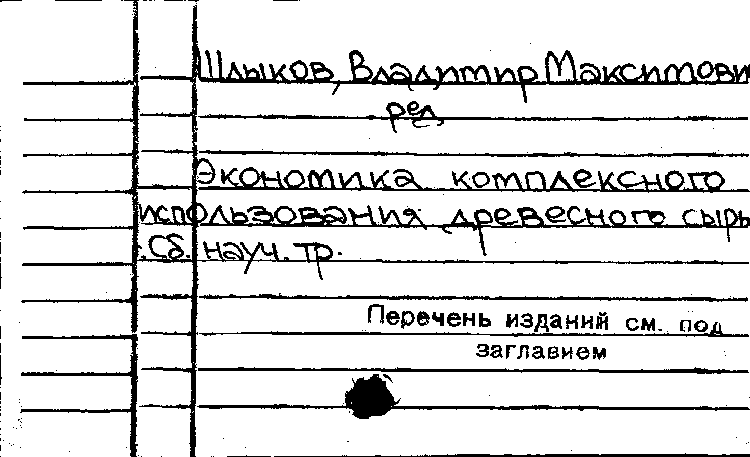 Шлыков, Владимир Максимови
ред.
Экономика комплексного
использования древесного сырь
: Сб. науч. тр.
Перечень изданий см. под
заглавием